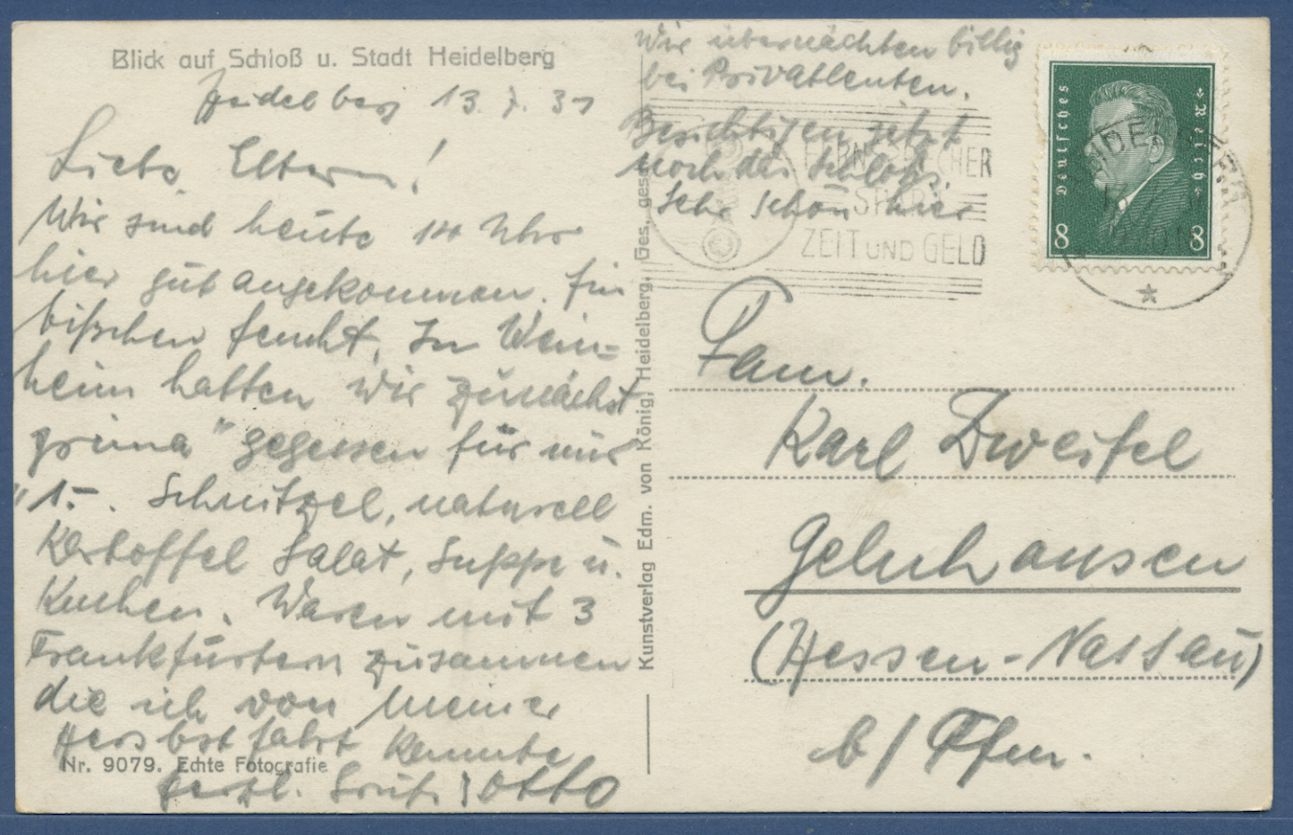 Blick auf Schloß u. Stadt Heidelberg
Heidelberg 13. 7. 31
Liebe Eltern!
Wir sind heute 14 Uhr
hier gut angekommen. Ein
bißchen feucht. In Wein=
heim hatten wir zunächst
prima" gegessen für nur
"1.-. Schnitzel, naturell
Kartoffel Salat, Suppe u.
Kuchen. Waren mit 3
Frankfurtern zusammen
die ich von meiner
Herbstfahrt kannte
Nr. 9079. Echte Fotografie
Herzl. Gruß Otto
Wir übernachten billig
bei Privatleuten.
Besichtigen jetzt
noch das Schloß.
Sehr schön hier
Kunstverlag Edm. von König, Heidelberg. Ges. gesch.
FERNSPRECHER
SPART
ZEIT UND GELD
Deutsches Reich
8 8
HEIDELBERG
Fam.
Karl Zweifel
Gelnhausen
(Hessen-Nassau)
b/ Ffm.